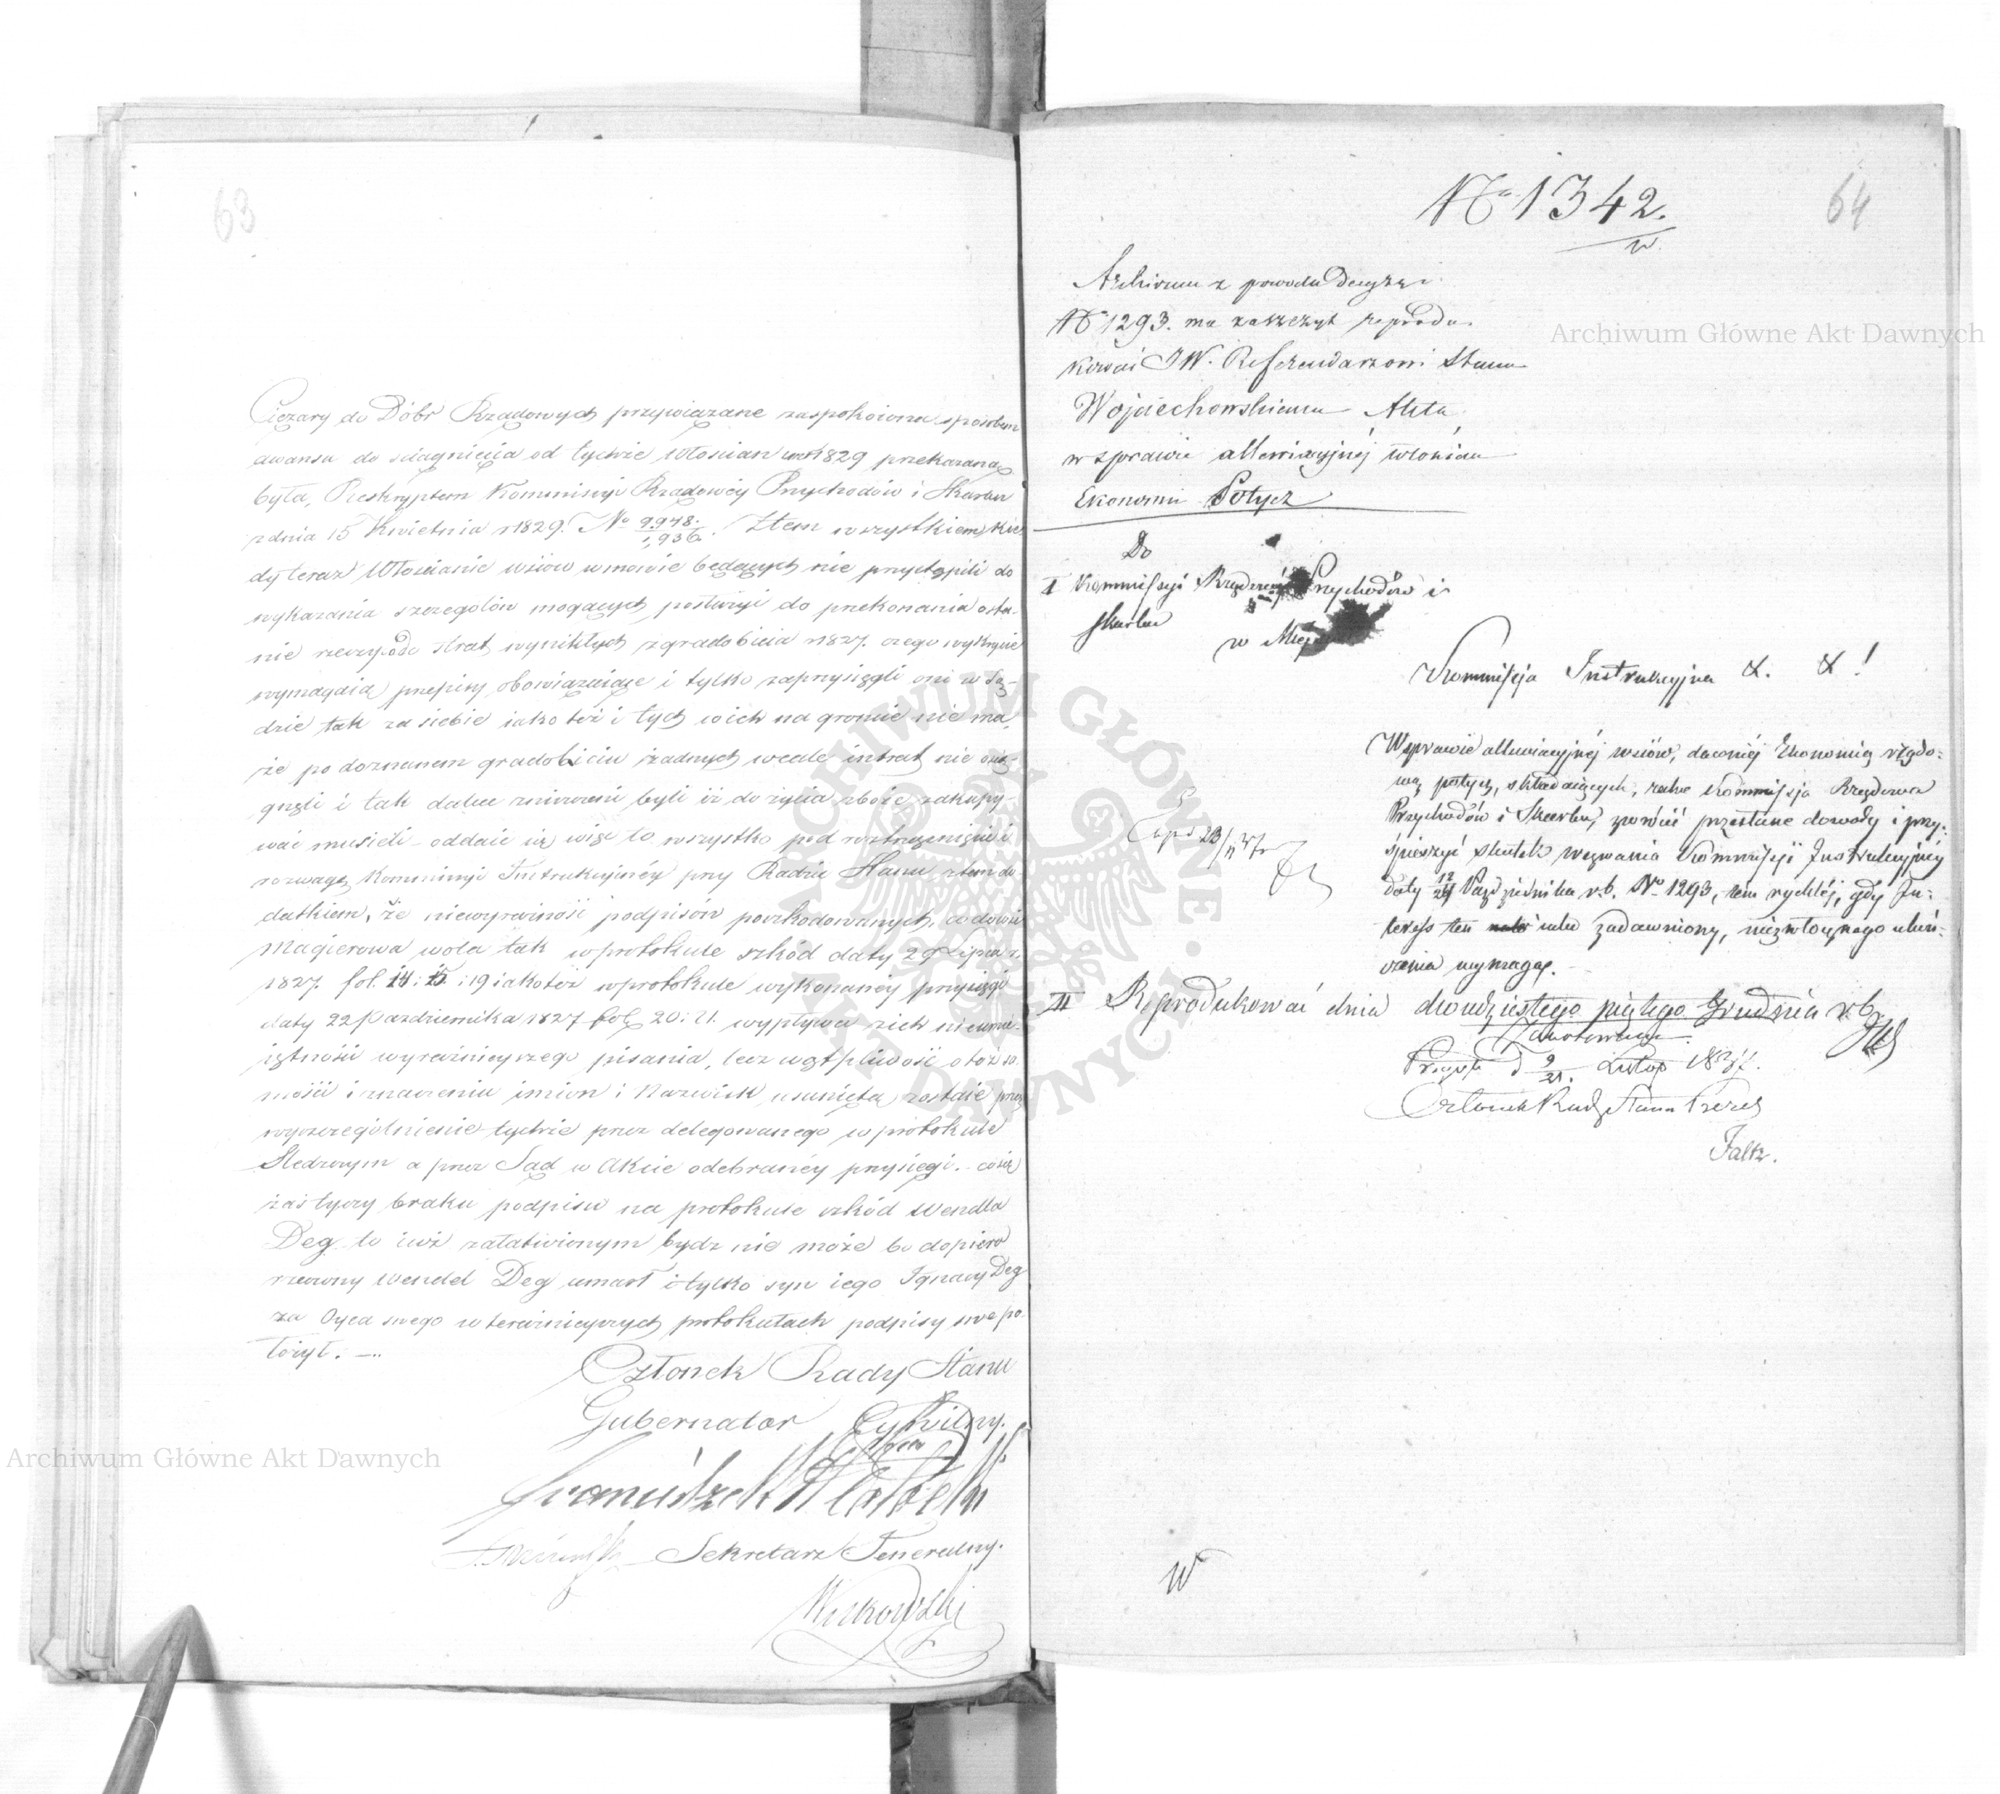 63
Ciężary do Dóbr Rządowych przywiązane zaspokoione sposobem
awansu do sciągnięcia od tychże Włoscian w r. 1829 przekazaną
była, Reskryptem Kommissyi Rządowéy Przychodów i Skarbu
z dnia 15 Kwietnia r 1829. No 9,948./1,936. Ztem wszystkiem kie-
dy teraz Włoscianie wsiów w mowie będących nie przystąpili do
wykazania szczegółów mogących posłużyć do przekonania osta-
nie rzeczy co do strat wynikłych z gradobicia r 1827. czego wykrycie
wymagaią przepisy obowiązuiące i tylko zaprzysięgli oni w Są-
dzie tak za siebie iako też i tych w ich na gronie nie ma,
że po doznanem gradobiciu żadnych wcale intrat nie osią-
gnęli i tak dalece zniszczeni byli iż do życia zboże zakupy-
wać musieli oddaie się więc to wszystko pod roztrząśnięcie i
rozwagę Kommissyi Instrukcyinéy przy Radzie Stanu z tem do-
datkiem, że niewyraźność podpisów poszkodowanych, co do wsi
Magierowa wola tak w protokule szkód daty 2 Lipca r.
1827. fol. 14: 15: 19 iako też w protokule wykonanéy przysięgi
daty 22 Pazdziernika 1827 fol. 20: 21. wypływa z ich nieumie-
iętności wyraźnieyszego pisania, lecz wątpliwość o tożsa-
mości i znaczeniu imion i Nazwisk usunięta zostaie przez
wyszczególnienie tychże przez delegowanego w protokule
śledczym a przez Sąd w Akcie odebranéy przysięgi. co się
zaś tyczy braku podpisu na protokule szkód Wendla
Deg to iuż załatwionym bydz nie może bo dopiero
rzeczony Wendel Deg umarł i tylko syn iego Ignacy Deg
za Oyca swego w teraźnieyszych protokułach podpisy swe po-
łożył.
Członek Rady Stanu
Gubernator Cywilny.
Sekretarz Generalny.
64
No 1342.
w.
Archiwum z powodu Decyzyi
No 1293. ma zaszczyt reprodu-
kować JW. Referendarzowi Stanu
Wojciechowskiemu Akta
w sprawie allewiacyjnéj włościan
Ekonomii Potycz
Do
I Kommissyi Rządowéj Przychodów i
Skarbu
w Miej
Kommissja Instrukcyjna &. &!
W sprawie allewiacyjnéj wsiów, dawniéj Ekonomią rządo-
wą Potycz, składaiących, zechce Kommissja Rządowa
Przychodów i Skarbu, zwrócić przesłane dowody i przy-
śpieszyć skutek wezwania Kommissji Instrukcyjnéj
daty 12/24 Pazdziernika r.b. No 1293, tém rychléj, gdy In-
teress ten wielce zadawniony, niezwłocznego ukoń-
czenia wymaga.
Exped 23/11 37 r
II Reprodukować dnia dwudziestego piątego Grudnia r.b.
d 9/21. Listop 1837.
Członek Rady Stanu Prezes
Faltz.
W
Archiwum Główne Akt Dawnych
Archiwum Główne Akt Dawnych
ARCHIWUM GŁÓWNE AKT DAWNYCH